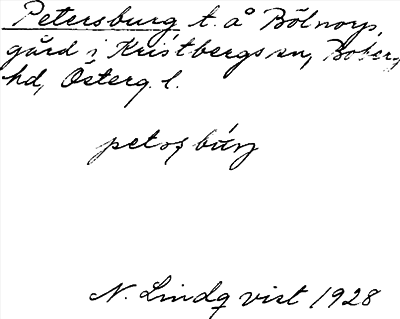 Petersburg t. å Bölnorps
gård i Kristbergs sn, Boberg
hd, Österg. l.
petoʂbúrj
N. Lindqvist 1928